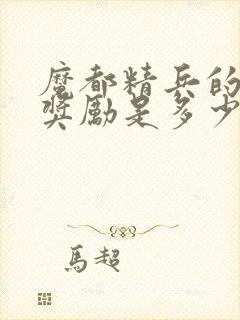 魔都精兵的
奖励是多少
馬超